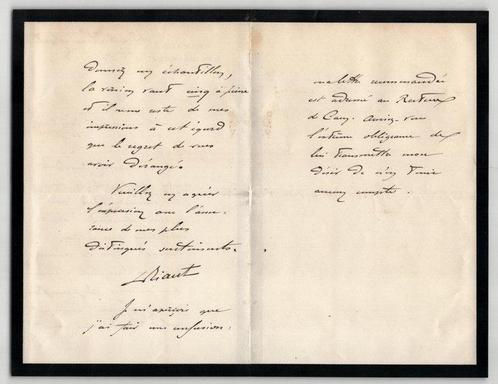 donner un échantillon,
la raison vaut cinq à peine
et il nous reste de mes
impressions à cet égard
que le regret de vous
avoir dérangé.
Veuillez en agréer
l'expression avec l'assu-
rance de mes plus
distingués sentiments.
Riant
Je m'aperçois que
j'ai fait une confusion :
ma lettre recommandée
est adressée au Recteur
de Caen. Auriez-vous
l'extrême obligeance de
lui transmettre mon
désir de n'en tenir
aucun compte.